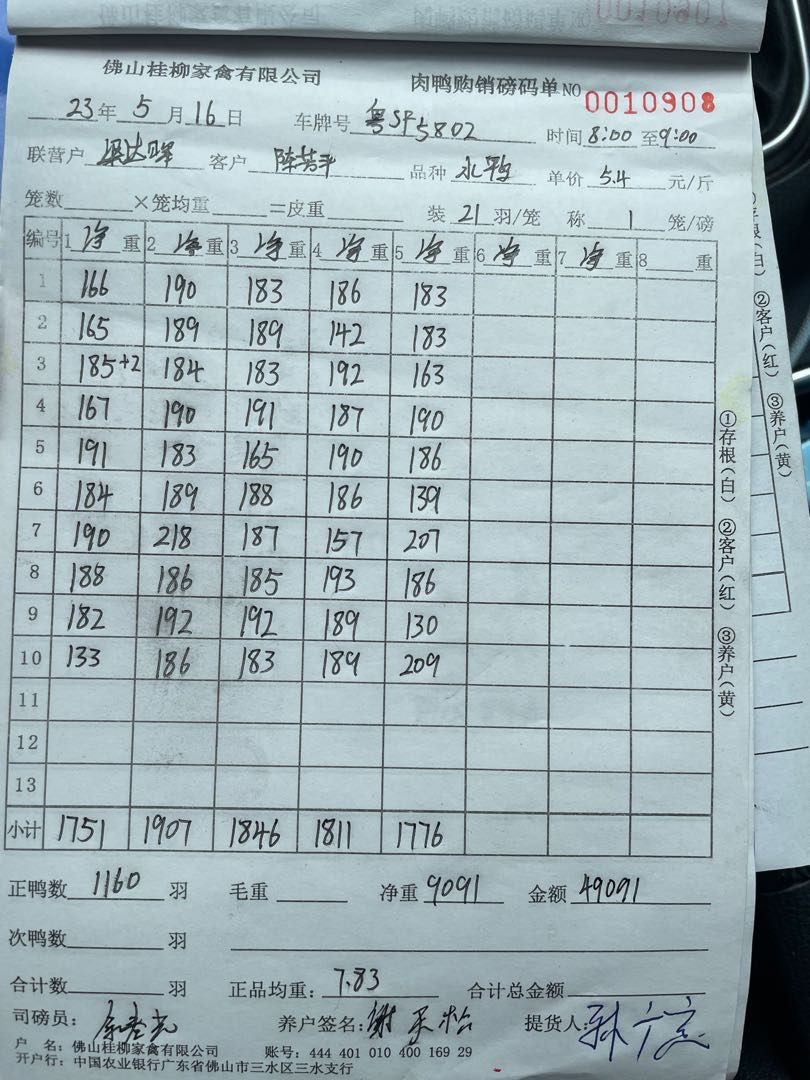 佛山桂柳家禽有限公司 肉鸭购销磅码单 NO 0010908
23年 5月 16日 车牌号 粤SF5802 时间 8:00 至 9:00
联营户 客户 品种 水鸭 单价 5.4 元/斤
笼数 ×笼均重 =皮重 装 21 羽/笼 称 1 笼/磅
编号 1 净 重 2 净 重 3 净 重 4 净 重 5 净 重 6 净 重 7 净 重 8 重
1 166 190 183 186 183
2 165 189 189 142 183
3 185+2 184 183 192 163
4 167 190 191 187 190
5 191 183 165 190 186
6 184 189 188 186 139
7 190 218 187 157 207
8 188 186 185 193 186
9 182 192 192 189 130
10 133 186 183 189 209
11
12
13
小计 1751 1907 1846 1811 1776
正鸭数 1160 羽 毛重 净重 9091 金额 49091
次鸭数 羽
合计数 羽 正品均重: 7.83 合计总金额
司磅员: 养户签名: 提货人:
户 名: 佛山桂柳家禽有限公司 账号: 444 401 010 400 169 29
开户行: 中国农业银行广东省佛山市三水区三水支行
①存根(白) ②客户(红) ③养户(黄)
②客户(红) ③养户(黄)
0010907